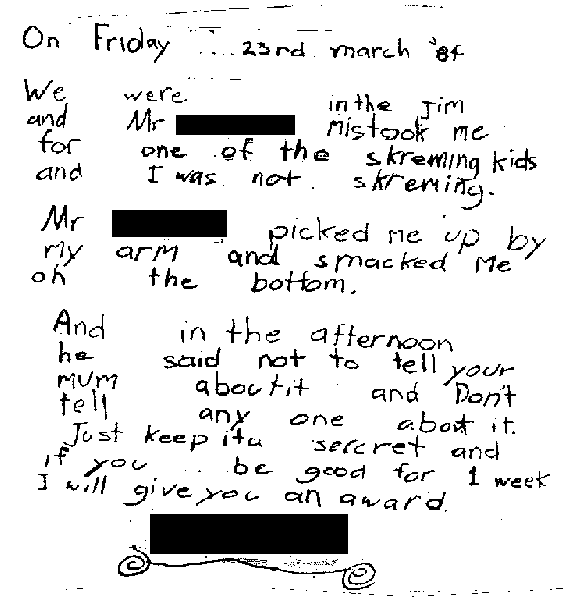 On Friday 23rd march '84
We were in the Jim
and Mr mistook me
for one of the skreming kids
and I was not skreming.
Mr picked me up by
my arm and smacked me
on the bottom.
And in the afternoon
he said not to tell your
mum aboutit and Don't
tell any one about it.
Just keep ita sercret and
if you be good for 1 week
I will give you an award.